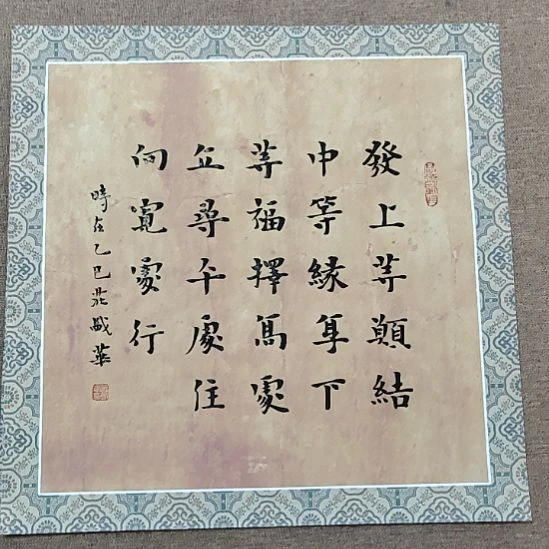 發上等願結
中等緣享下
等福擇高處
立尋平處住
向寬處行
時在乙巳莊嚴華